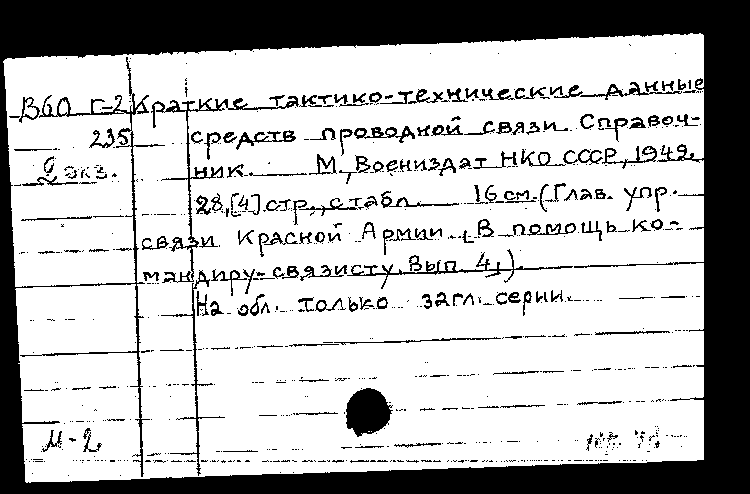 В60 Г-2 Краткие тактико-технические данные
235 средств проводной связи. Справоч-
2 экз. ник. М., Воениздат НКО СССР, 1942.
28,[4] стр., с табл. 16 см. (Глав. упр.
связи Красной Армии. В помощь ко-
мандиру-связисту. Вып. 4.).
На обл. только загл. серии.
М-2